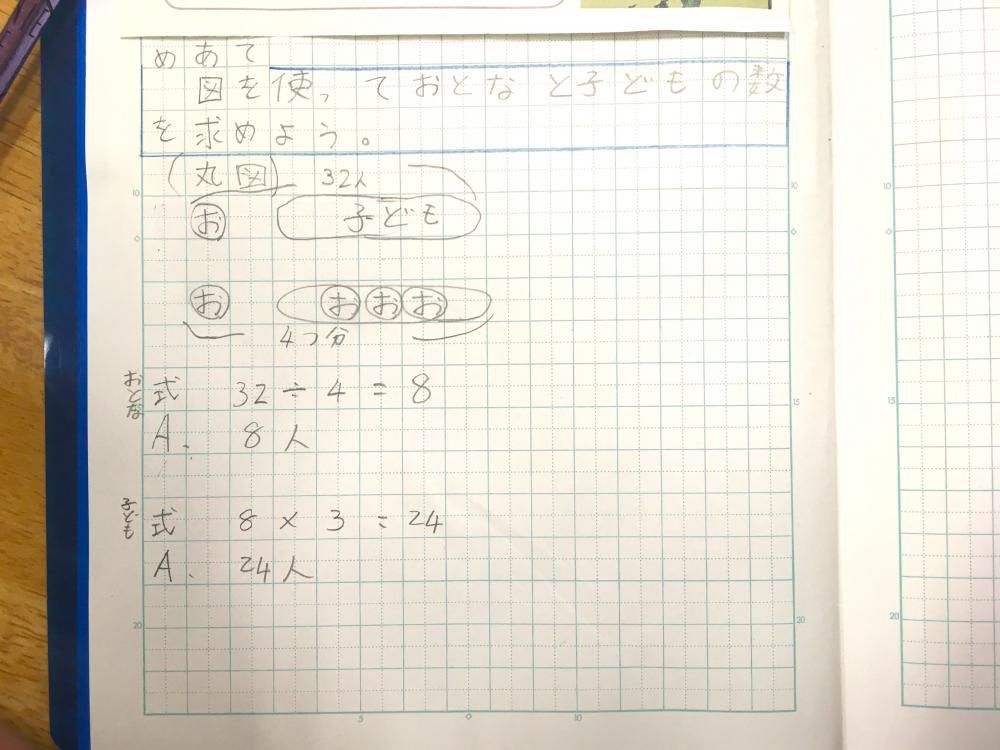 めあて
図を使っておとなと子どもの数
を求めよう。
(丸図) 32人
お 子ども
お おおお
4つ分
おとな 式 32÷4=8
A. 8人
子ども 式 8×3=24
A. 24人
10 10 10
0 0 0
15 15
20 20 20
5 0 10